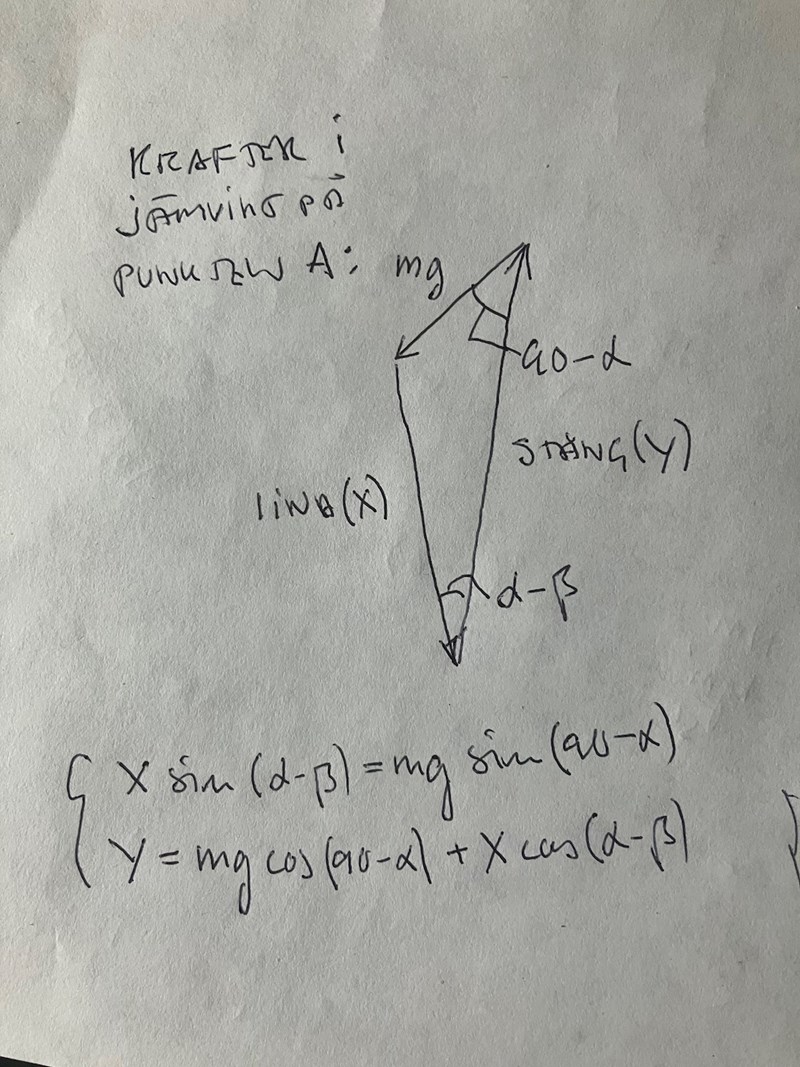 KRAFTER i
jämvikt på
PUNKTEN A: mg
90-α
STÅNG(Y)
LINA(X)
α-β
X sin (α-β) = mg sin (90-α)
Y = mg cos (90-α) + X cos (α-β)